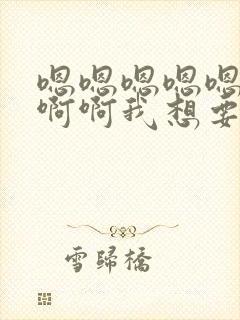 嗯嗯嗯嗯嗯
啊啊我想要
雪歸橋